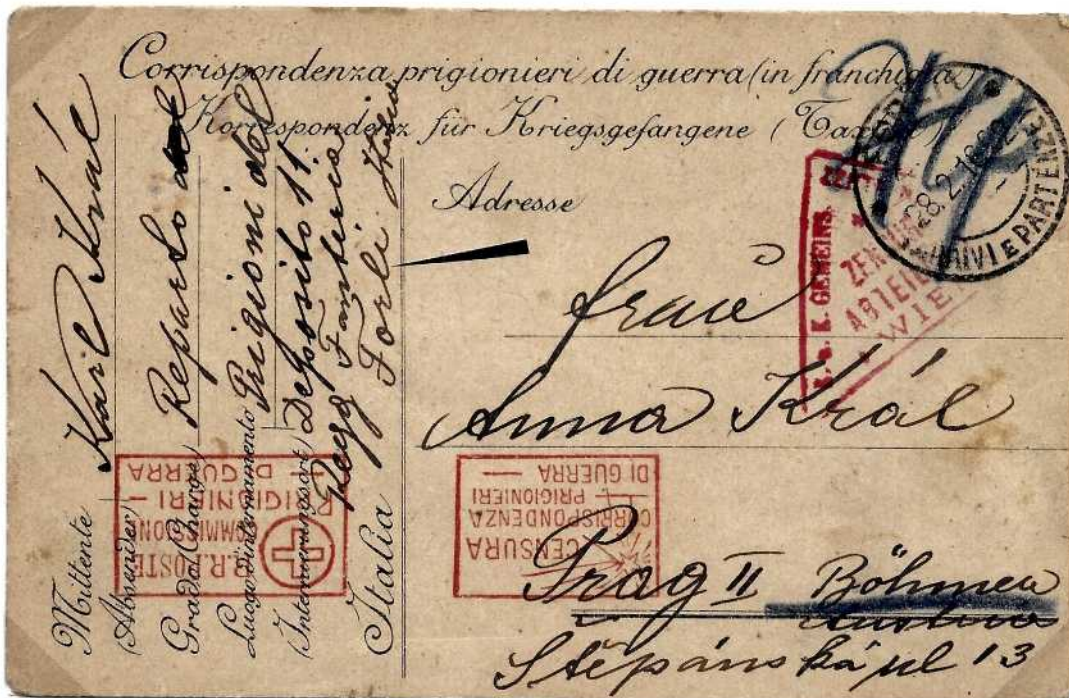 Corrispondenza prigionieri di guerra (in franchigia)
Korrespondenz für Kriegsgefangene
Adresse
Frau
Anna Král
Prag II Böhmen
Austria
Štěpánská ul 13
Mittente
(Absender)
Karl Král
Grado (Charge)
Reparto
Luogo d'internamento
Prigionieri del
(Internierungsort)
Deposito 11.
Regg Fanteria
Italia
Forli Italia
R.R. POSTE
COMMISSIONE
PRIGIONIERI
DI GUERRA
CENSURA
CORRISPONDENZA
PRIGIONIERI
DI GUERRA
K. u. K. GEMEINS.
ABTEIL
WIEN
28.2.16
ARRIVI E PARTENZE